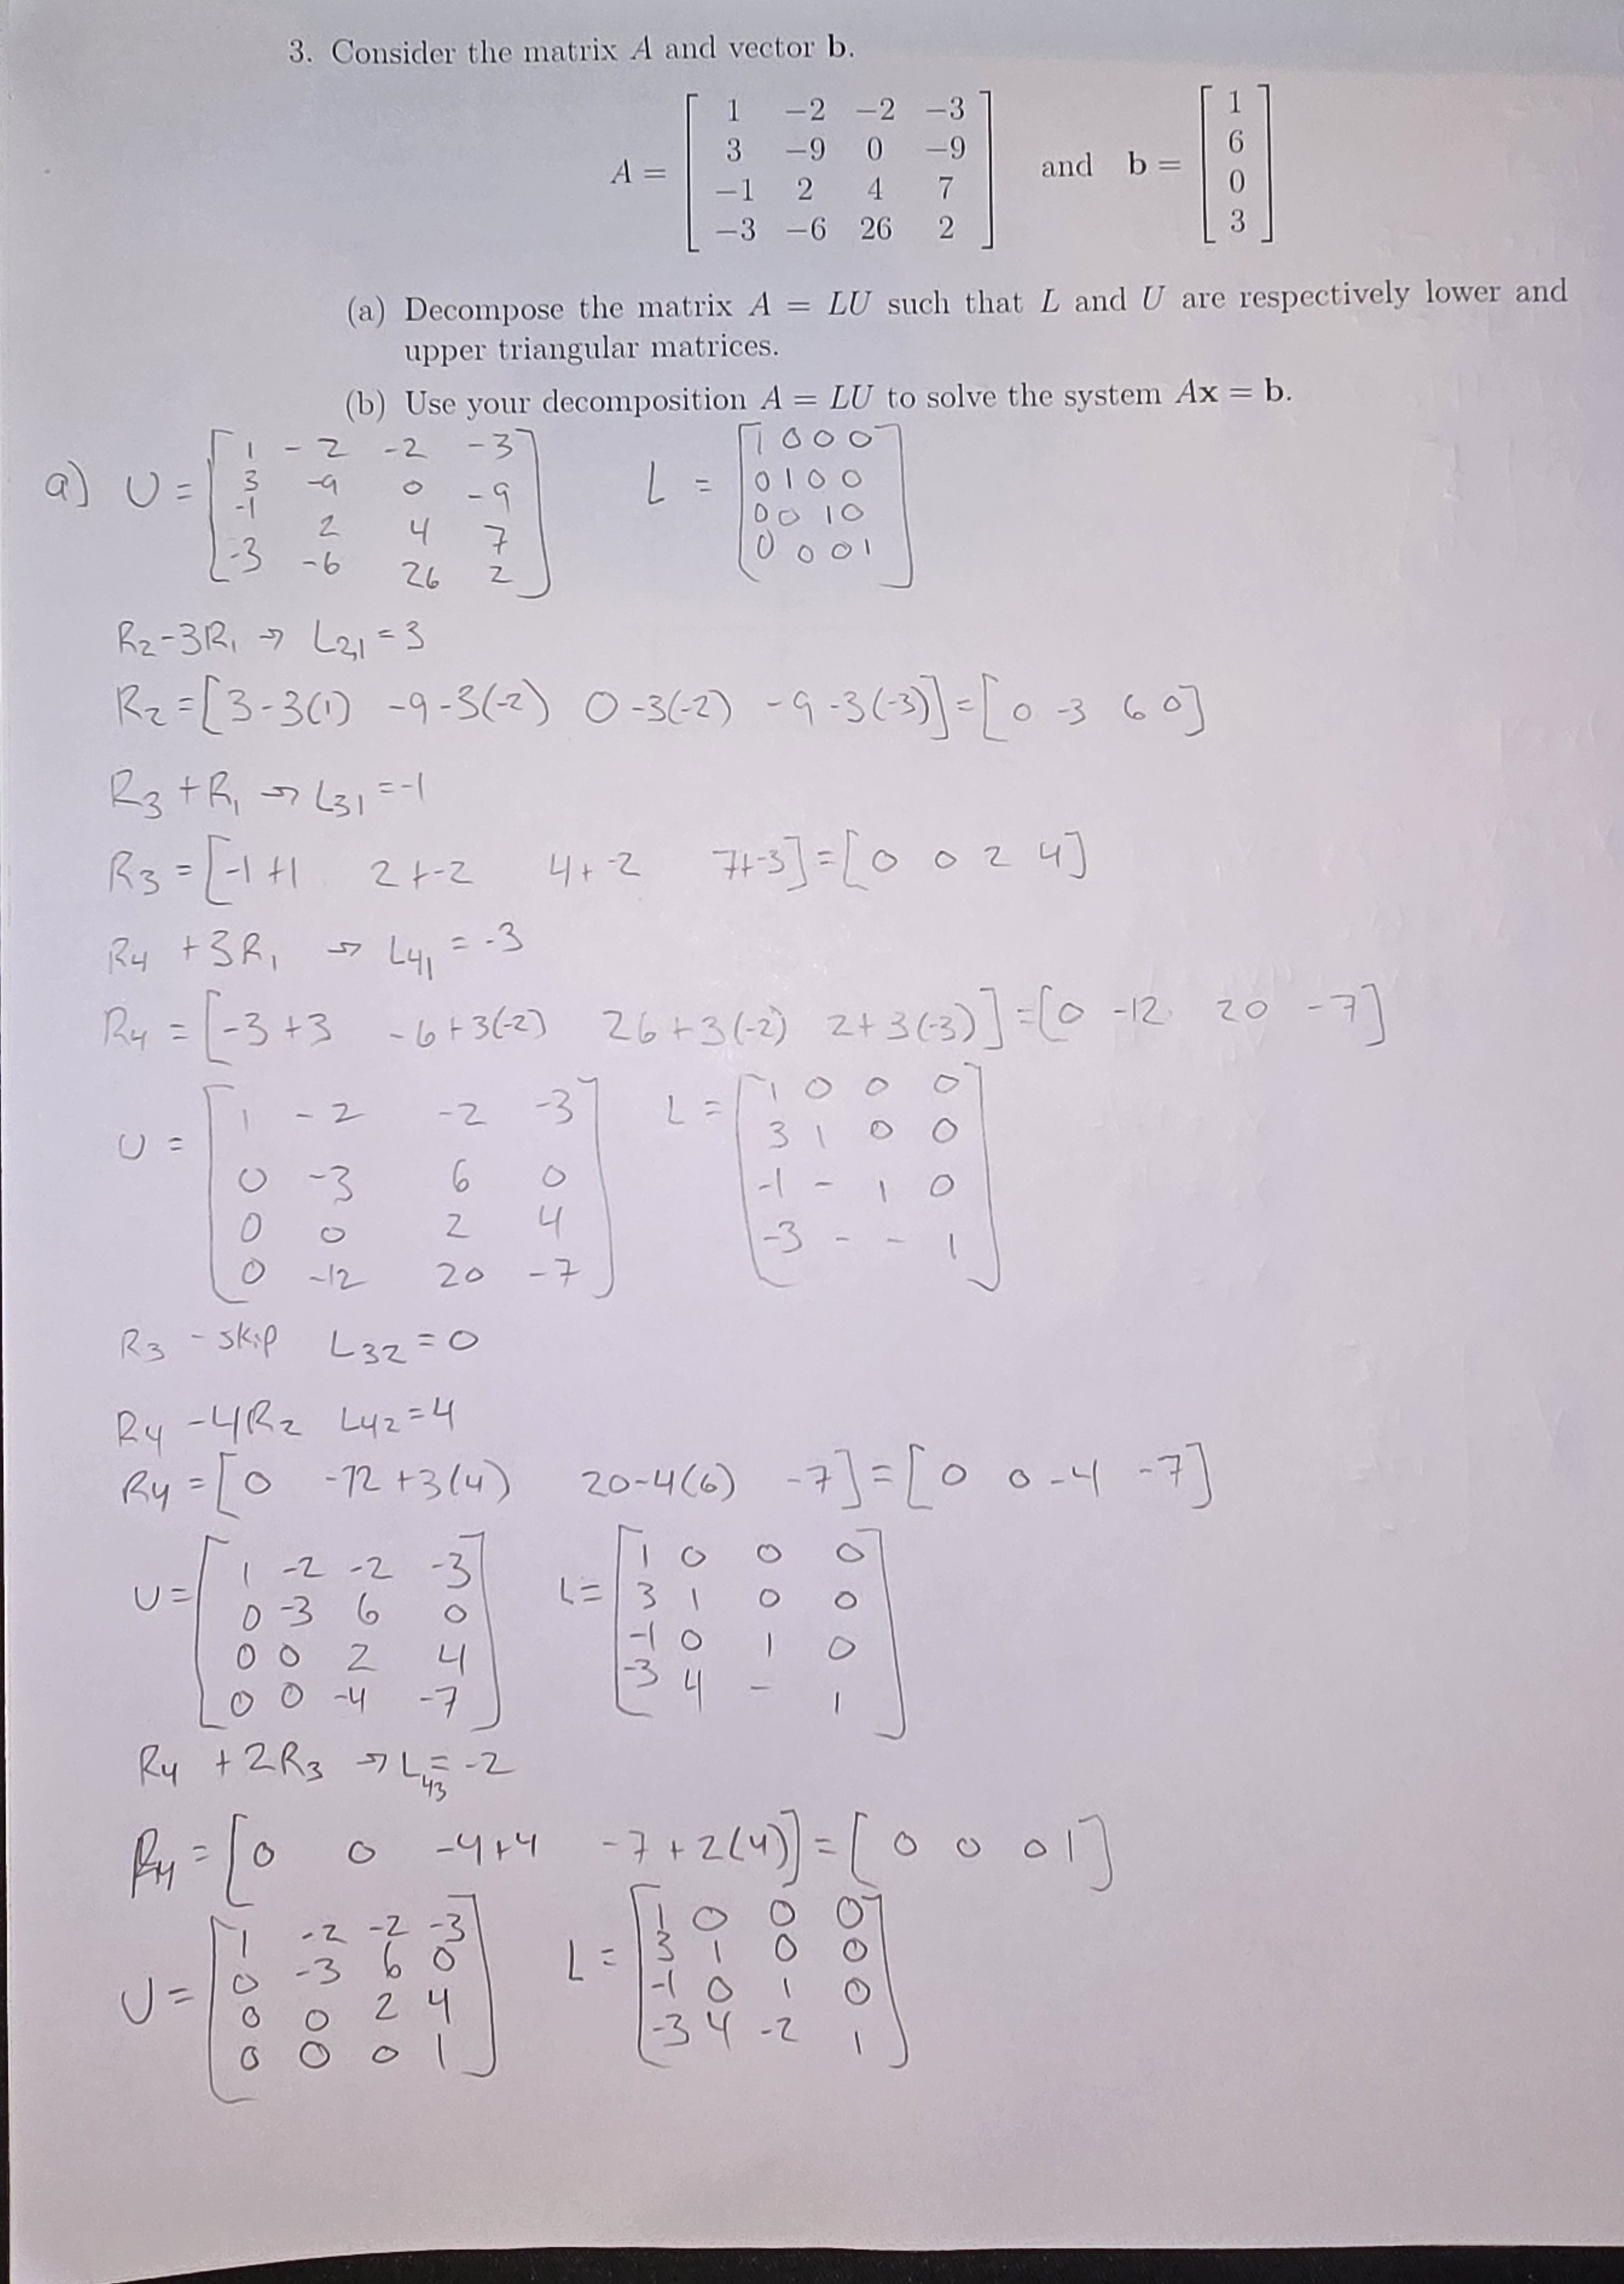 3. Consider the matrix A and vector b.
A = [ 1 −2 −2 −3
3 −9 0 −9
−1 2 4 7
−3 −6 26 2 ] and b = [ 1
6
0
3 ]
(a) Decompose the matrix A = LU such that L and U are respectively lower and
upper triangular matrices.
(b) Use your decomposition A = LU to solve the system Ax = b.
a) U = [ 1 -2 -2 -3
3 -9 0 -9
-1 2 4 7
-3 -6 26 2 ]
L = [ 1 0 0 0
0 1 0 0
0 0 1 0
0 0 0 1 ]
R2-3R1 → L2,1 = 3
R2 = [3-3(1) -9-3(-2) 0-3(-2) -9-3(-3)] = [0 -3 6 0]
R3+R1 → L31 = -1
R3 = [-1+1 2+-2 4+-2 7+-3] = [0 0 2 4]
R4 +3R1 → L41 = -3
R4 = [-3+3 -6+3(-2) 26+3(-2) 2+3(-3)] = [0 -12 20 -7]
U = [ 1 -2 -2 -3
0 -3 6 0
0 0 2 4
0 -12 20 -7 ]
L = [ 1 0 0 0
3 1 0 0
-1 - 1 0
-3 - - 1 ]
R3 - skip L32 = 0
R4 -4R2 L42 = 4
R4 = [0 -12+3(4) 20-4(6) -7] = [0 0 -4 -7]
U = [ 1 -2 -2 -3
0 -3 6 0
0 0 2 4
0 0 -4 -7 ]
L = [ 1 0 0 0
3 1 0 0
-1 0 1 0
-3 4 - 1 ]
R4 +2R3 → L43 = -2
R4 = [0 0 -4+4 -7+2(4)] = [0 0 0 1]
U = [ 1 -2 -2 -3
0 -3 6 0
0 0 2 4
0 0 0 1 ]
L = [ 1 0 0 0
3 1 0 0
-1 0 1 0
-3 4 -2 1 ]